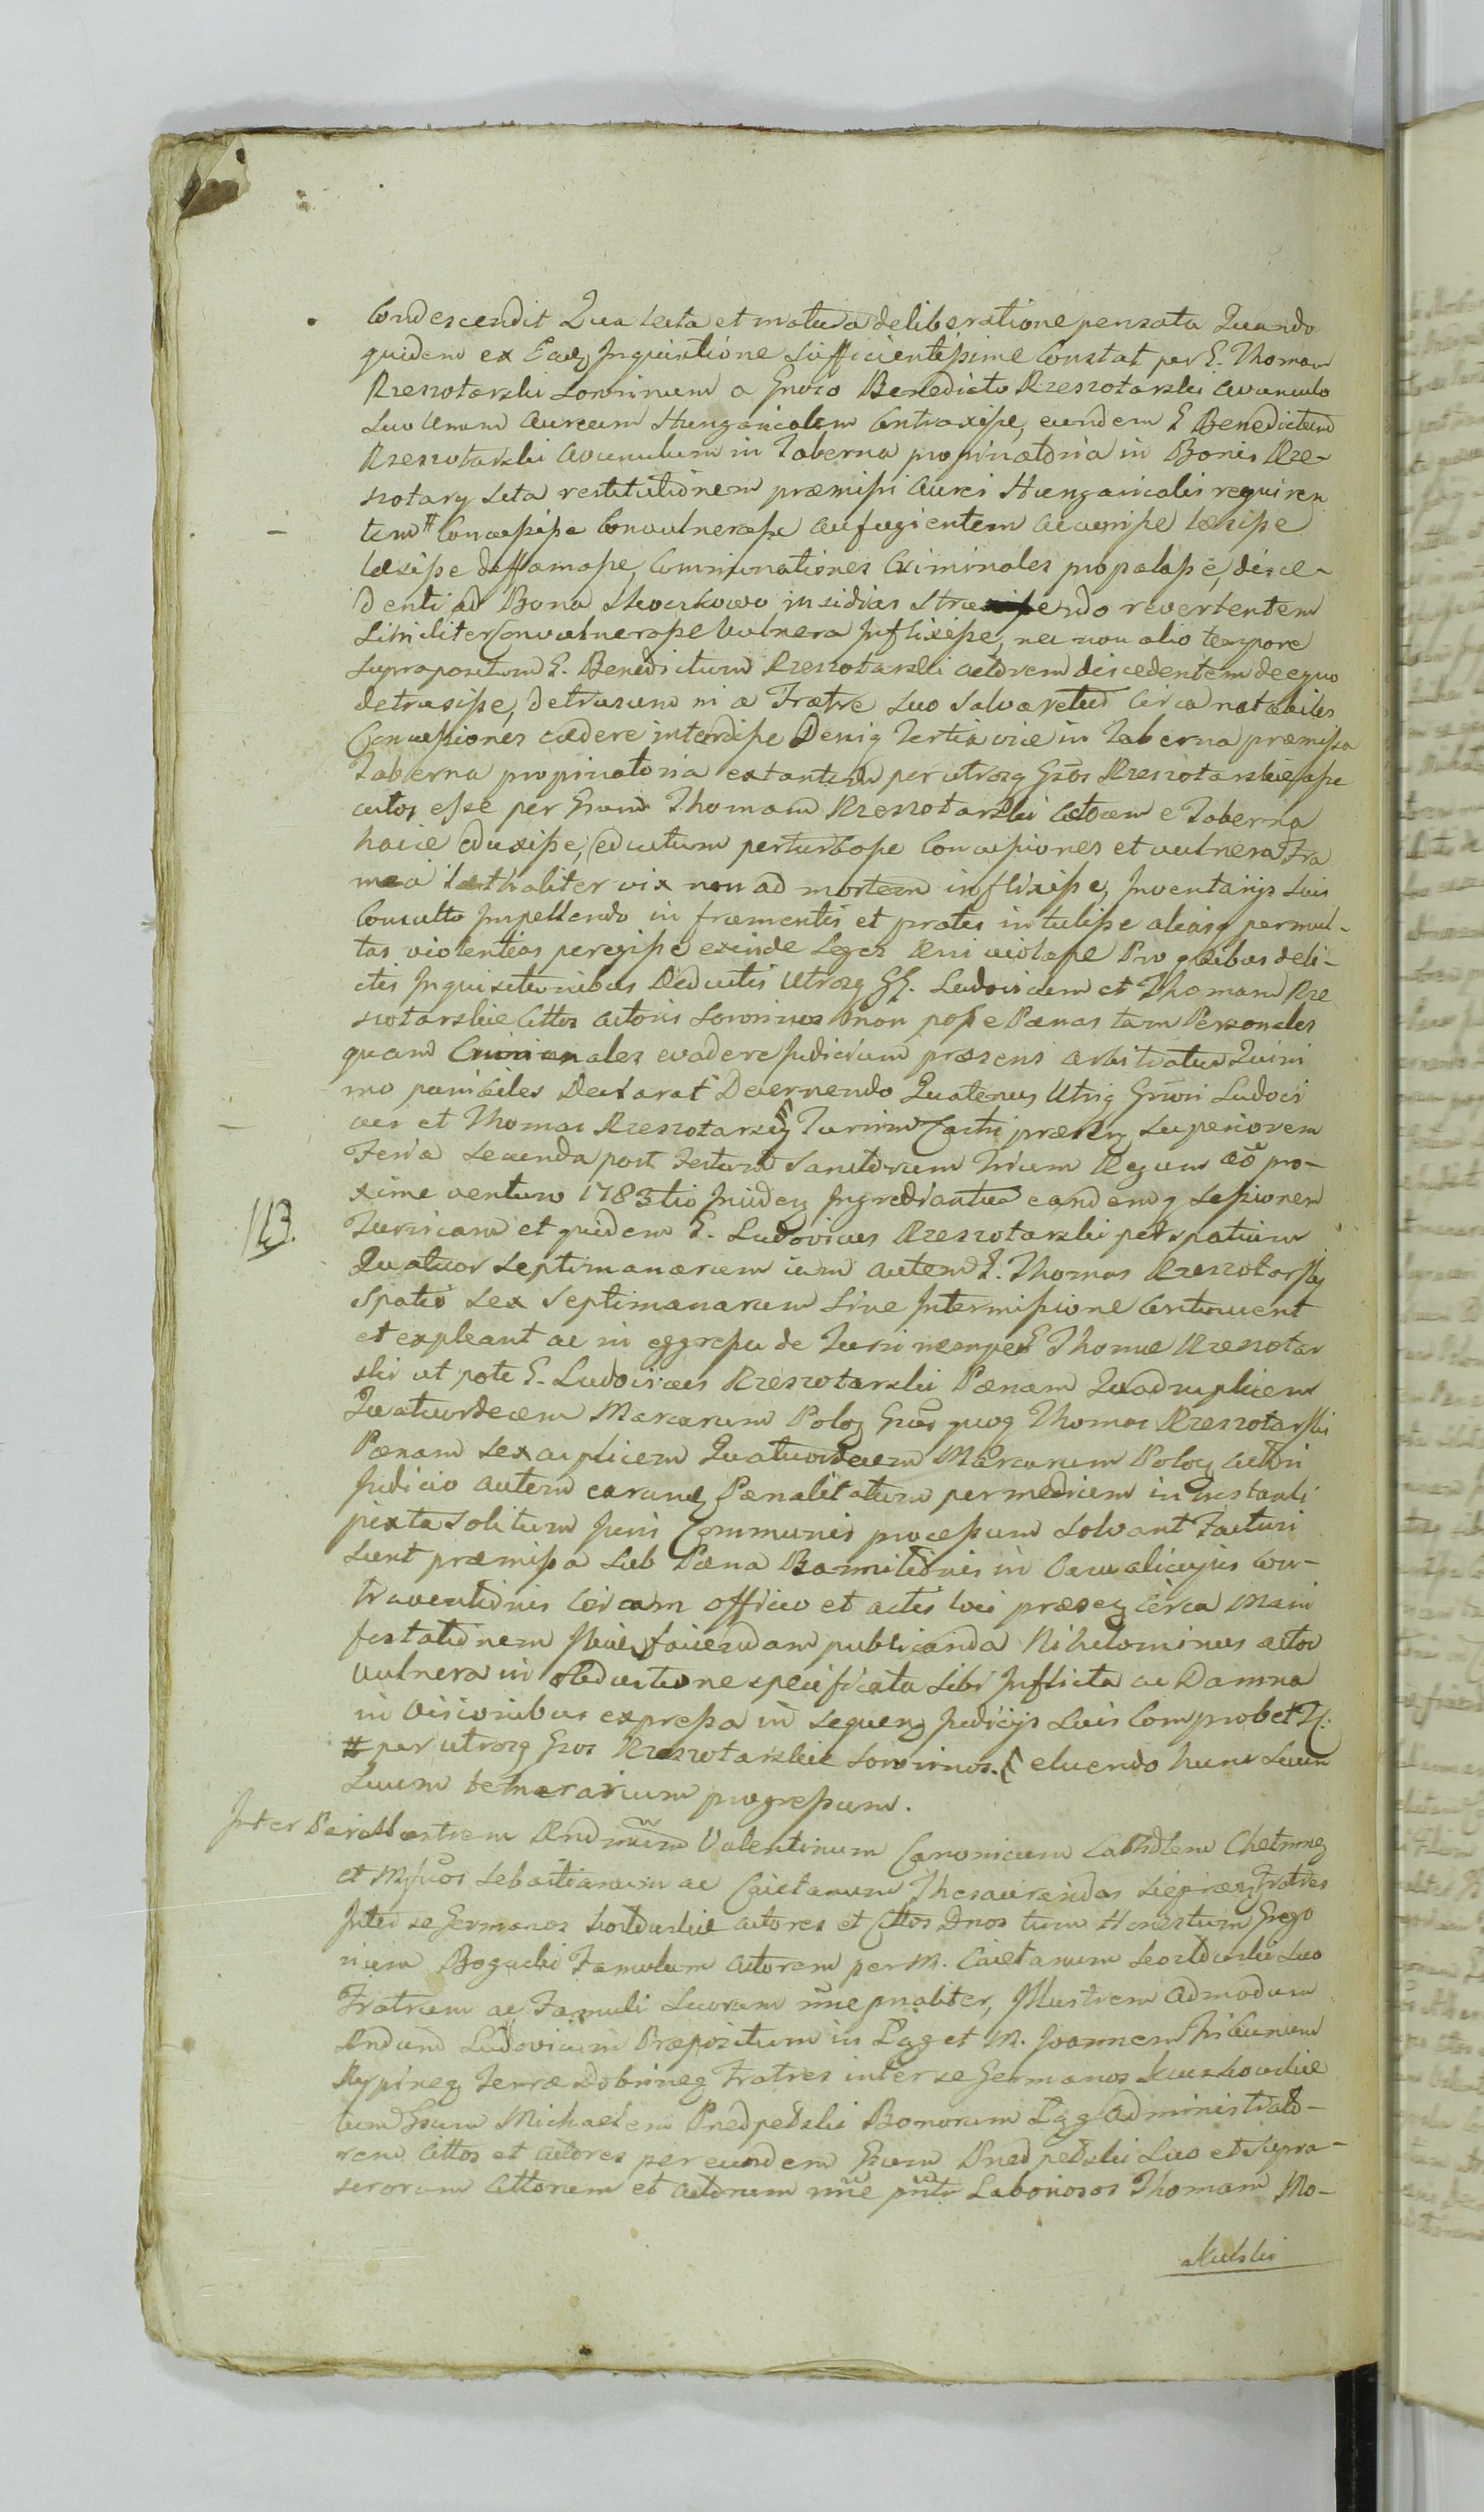 Condescendit Qua lecta et matura deliberatione pensata Quando
quidem ex Eadq Inquisitione sufficientissime Constat per G. Thomam
Rzeszotarski Sororinum a Gnoso Benedicto Rzeszotarski avunculo
Suo Unum Aureum Hungaricalem Contraxisse, eundem G Benedictum
Rzeszotarski Avunculum in Taberna propinatoria in Bonis Rze-
szotary Seta restitutionem præmissi Aurei Hungaricalis requiren
tem # Concussisse Convulnerasse aufugientem læsisse
læsisse deffamasse, Comminationes Criminales propalasse, disce-
denti ad Bona insidias Struendo revertentem
Similiter Convulnerasse Vulnera Inflixisse, nec non alio tempore
Supraposetum G. Benedictum Rzeszotarski actorem discedentem de equo
detrusisse, detrusum ni a Fratre Suo Salvaretur Circa notabiles
Concussiones cædere intendisse Deniq Tertia vice in Taberna præmissa
Taberna propinatoria extantem per utrosq Gsos Rzeszotarskie
esse per Gsum Thomam Rzeszotarski actorem e Taberna
eduxisse, eductum perturbasse Concussiones et vulnera Fra
mea læthaliter vix non ad mortem inflixisse, Inventarijs Suis
Consulto Impellendo in frumentis et pratis intulisse aliasq permul-
tas violentias peregisse exinde Leges Rni violasse Pro quibus deli-
ctis Inquisitionibus Deductis Utrosq GG. Ludovicum et Thomam Rze
szotarskie Cttos actoris Sororinos non posse Pænas tam Personales
quam Criminales evadere Judicium præsens arbitratur Quini
mo punibiles Declarat Decernendo Quatenus Utriq Gnosi Ludovi
cus et Thomas Rzeszotarscy Turrim Castri præsen Superiorem
Feria Secunda post Festum Sanctorum Trium Regum aõ pro-
xime venturo 1783tio Ingrediantur eandemq Sessionem
113.
Turricam et quidem G. Ludovicus Rzeszotarski per spatium
Quatuor Septimanarum autem G. Thomas Rzeszotarski
Spatio Sex Septimanarum Sine Intermissione Continuent
et expleant ac in eggressu de Turri nempe G Thomæ Rzeszotar
ski ut pote G. Ludovicus Rzeszotarski Pænam Quadruplicem
Quatuordecem Marcarum Polo Gsus quoq Thomas Rzeszotarski
Pænam Sexcuplicem Quatuordecem Marcarum Polo actori
Judicio autem earundq Pænalitatum permediem in instanti
juxta Solitum Juris Communis processum Solvant Facturi
sunt præmissa Sub Pæna Bannitionis in Casu alicujus Con-
traventionis Coram officio et actis loci præsen Circa Mani
festationem faciendam publicanda Nihilominus actor
Vulnera in obductione specificata sibi Inflicta ac Damna
in Visionibus expressa in sequen Judicijs Suis Comprobet
# per utrosq Gsos Rzeszotarskie Sororinos. eluendo hunc Suum
Suum temerarium progressum.
Inter Perillustrem Rndmum Valentinum Canonicum Chelmneq
et Mgfcos Sebastianum ac Caietanum Thesauraridas Fratres
Inter se Germanos actores et Cttos Dnos tum Honestum Grego
rium Bogucki Famulum actorem per M. Caietanum Suo
Fratrum ac Famuli Suorum nne pnaliter, Illustrem admodum
Rndum Ludovicum Præpositum in et M. Joannem Tribunum
Rypineq Terræ Dobrineq Fratres inter se Germanos
tum Gsum Michaelem Bonorum Administrato-
rem Cttos et actores per eundem Gsum Suo et Supra-
Cttorum et actorum nne Laboriosos Thomam Mo-